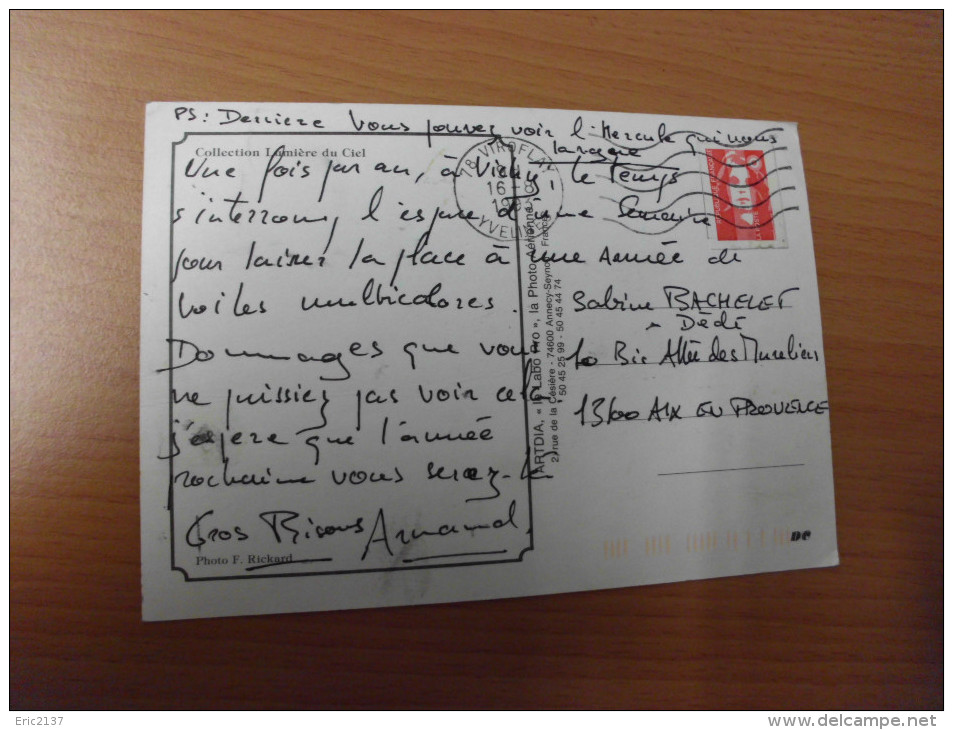 PS: Derriere vous pouvez voir l'Hercule qui nous
largue
Collection Lumière du Ciel
Une fois par an, à Vichy, le Temps
s'interromp, l'espace d'une Semaine
pour laisser la place à une Armée de
voiles multicolores.
Dommages que vous
ne puissiez pas voir cela
j'espere que l'année
prochaine vous serez-là
Gros Bisous Armand
Photo F. Rickard
78 VIROFLAY
16
19
YVELINES
ARTDIA, « le Labo Pro », la Photo Aérienne
2, rue de la Césière - 74600 Annecy-Seynod France
50 45 25 99 - 50 45 44 74
Sabine BACHELET
Dédé
10 Bis Allée des Mureliers
13100 AIX EN PROVENCE
DC
Eric2137
http://www.delcampe.net